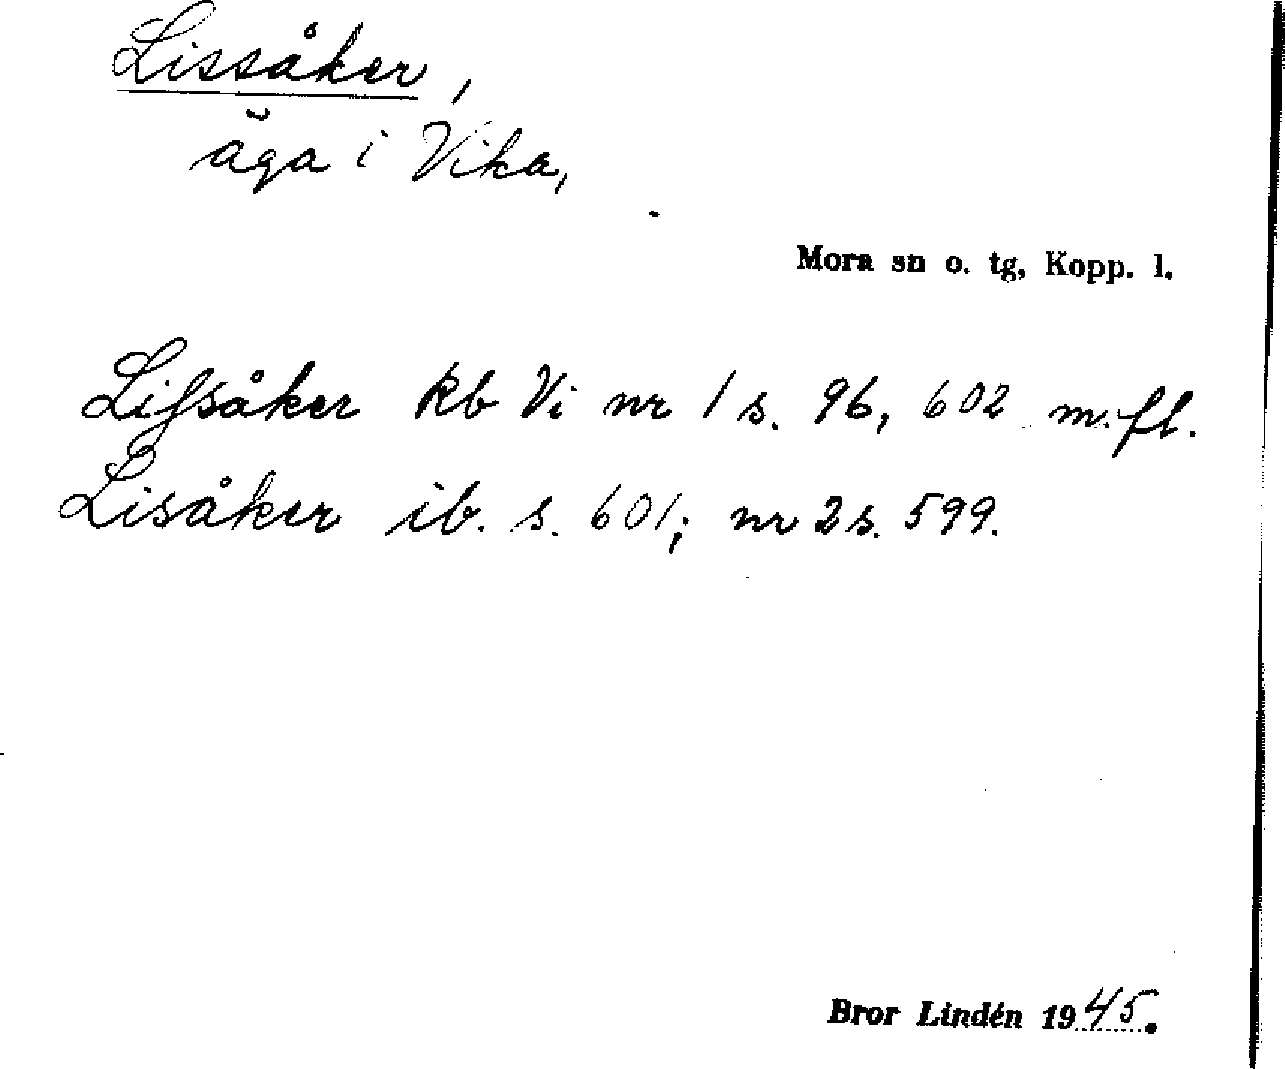 Lissåker,
äga i Vika,
Mora sn o. tg, Kopp. l.
Lifsåker kb Vi nr 1 s. 96, 602 m.fl.
Lisåker ib. s. 601; nr 2 s. 599.
Bror Lindén 1945.